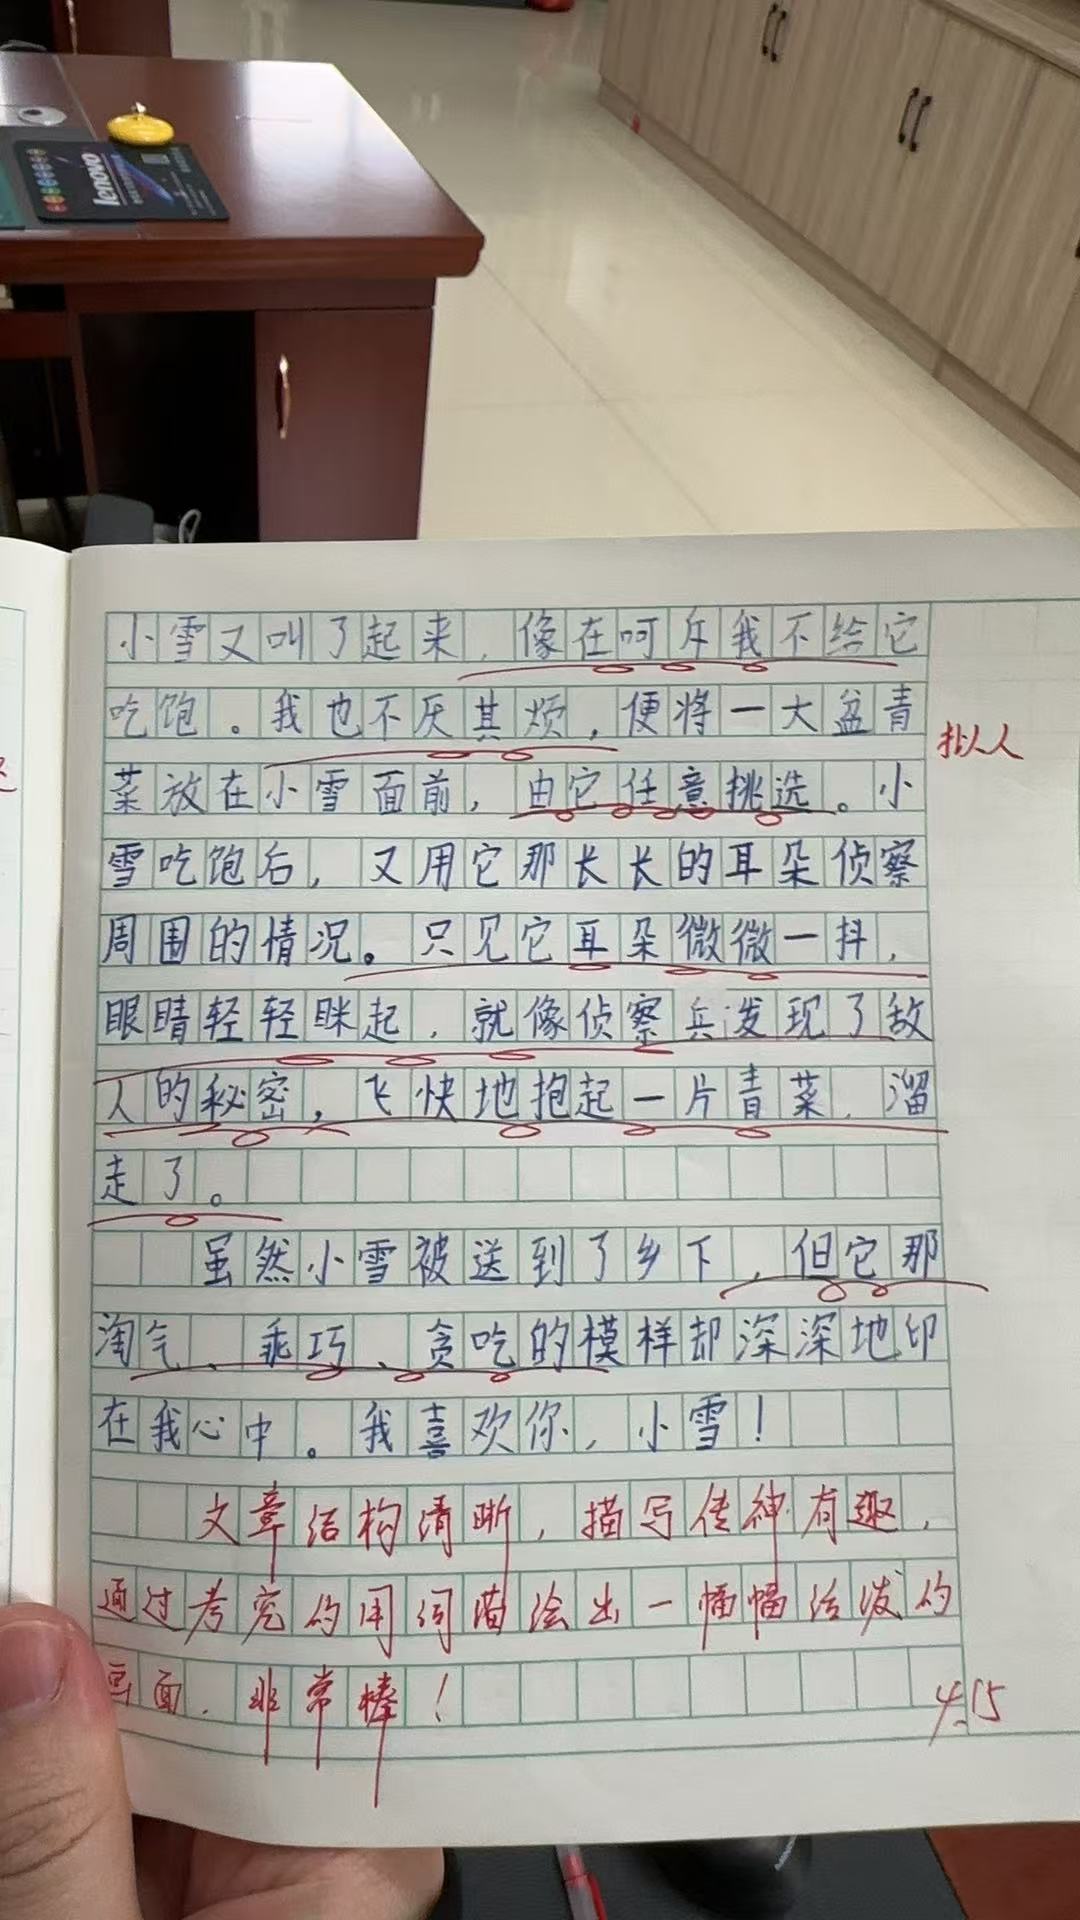 lenovo
小雪又叫了起来，像在呵斥我不给它
吃饱。我也不厌其烦，便将一大盆青
菜放在小雪面前，由它任意挑选。小
雪吃饱后，又用它那长长的耳朵侦察
周围的情况。只见它耳朵微微一抖，
眼睛轻轻眯起，就像侦察兵发现了敌
人的秘密，飞快地抱起一片青菜，溜
走了。
虽然小雪被送到了乡下，但它那
淘气、乖巧、贪吃的模样却深深地印
在我心中。我喜欢你，小雪！
拟人
文章结构清晰，描写传神有趣，
通过考究的用词描绘出一幅幅活泼的
画面，非常棒！
4.15